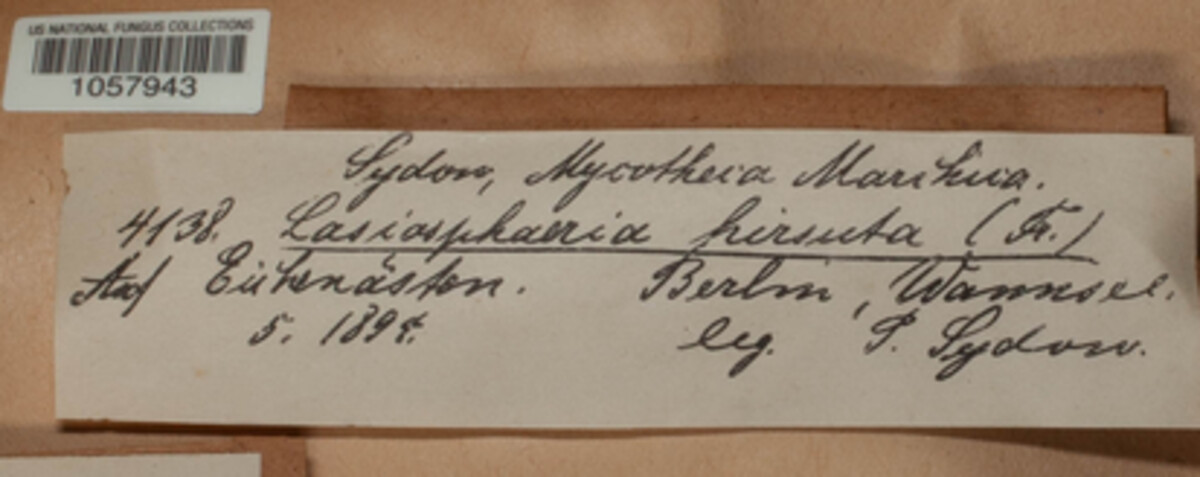 US NATIONAL FUNGUS COLLECTIONS
1057943
Sydow, Mycotheca Marchica.
4138. Lasiosphaeria hirsuta (Fr.)
Auf
Berlin, Wannsee.
5. 189
leg. P. Sydow.